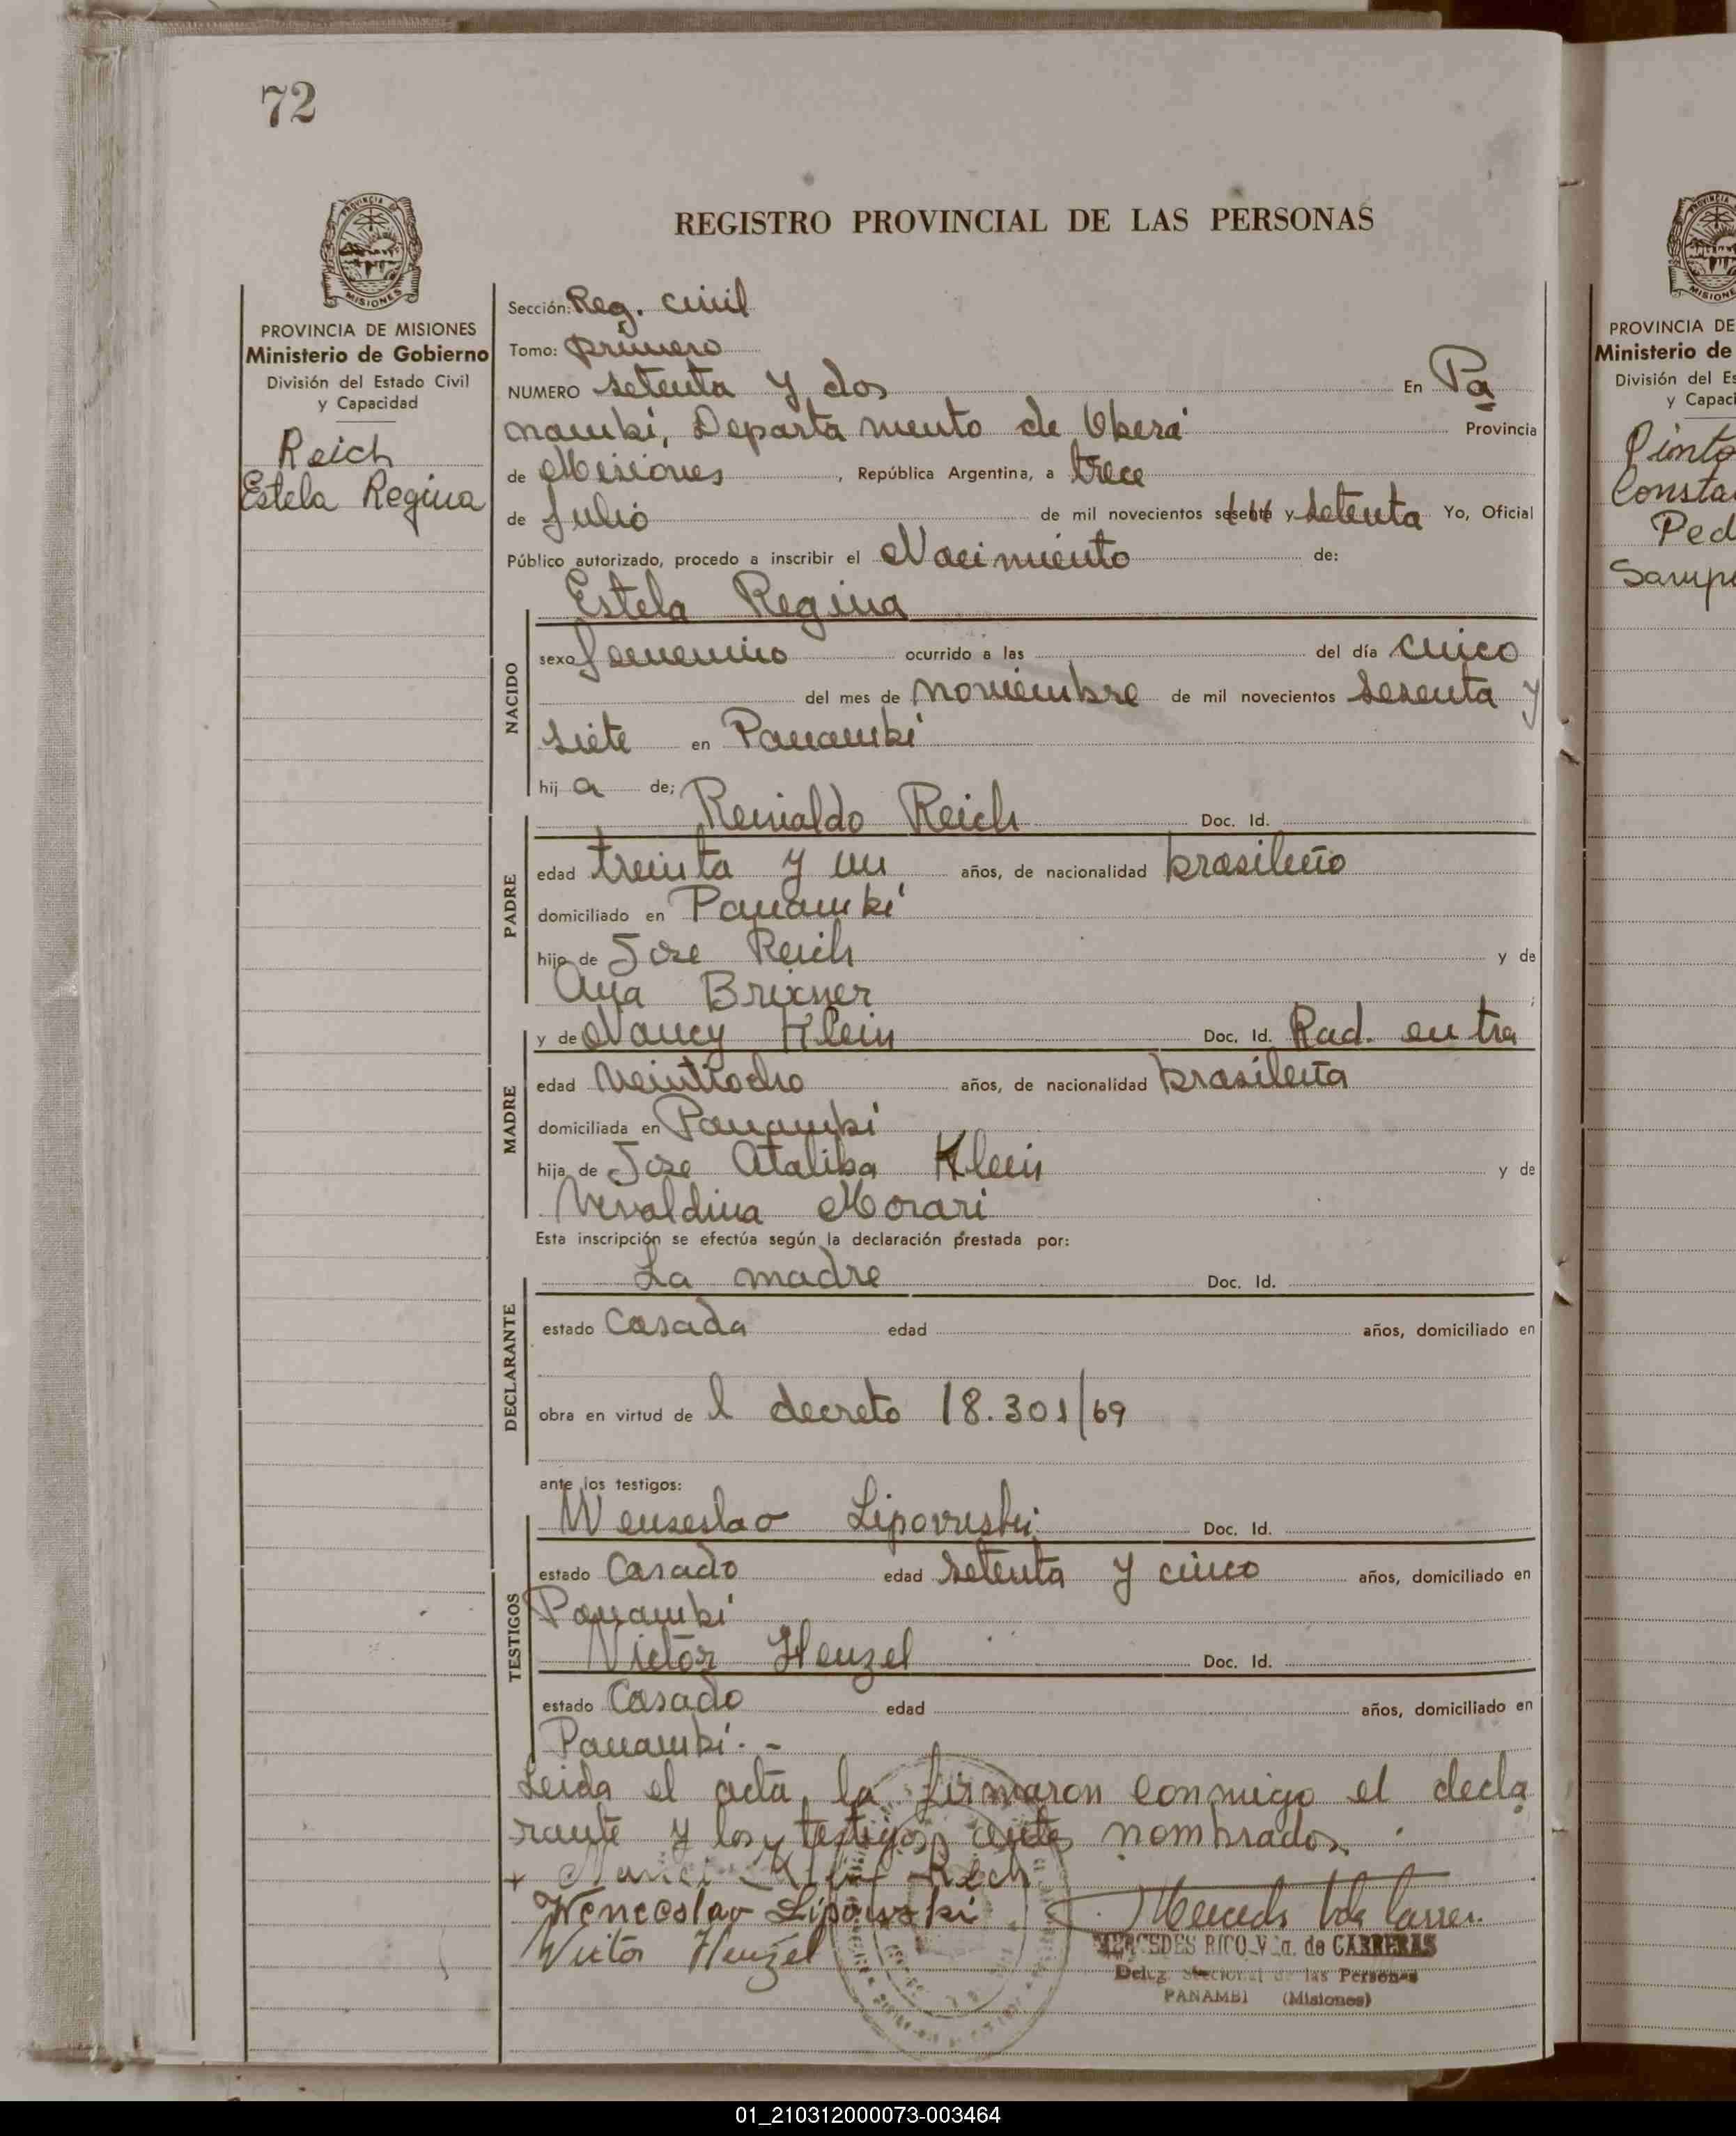 72
REGISTRO PROVINCIAL DE LAS PERSONAS
PROVINCIA DE MISIONES
Ministerio de Gobierno
División del Estado Civil
y Capacidad
Reich
Estela Regina
Sección: Reg. civil
Tomo: primero
NUMERO setenta y dos En Pa
nambi, Departamento de Oberá Provincia
de Misiones, República Argentina, a trece
de Julio de mil novecientos sesenta y setenta Yo, Oficial
Público autorizado, procedo a inscribir el Nacimiento de:
Estela Regina
NACIDO
sexo femenino ocurrido a las del día cinco
del mes de noviembre de mil novecientos sesenta y
siete en Panambí
hija de;
PADRE
Reinaldo Reich Doc. Id.
edad treinta y un años, de nacionalidad brasileño
domiciliado en Panambí
hijo de Jose Reich y de
Ana Brixner ;
MADRE
y de Nancy Klein Doc. Id. Rad. en tra
edad veintiocho años, de nacionalidad brasileña
domiciliada en Panambí
hija de Jose Ataliba Klein y de
Morari
Esta inscripción se efectúa según la declaración prestada por:
DECLARANTE
La madre Doc. Id.
estado Casada edad años, domiciliado en
obra en virtud de l decreto 18.301/69
ante los testigos:
TESTIGOS
Wenseslao Lipovieski Doc. Id.
estado Casado edad setenta y cinco años, domiciliado en
Panambi
Victor Henzel Doc. Id.
estado Casado edad años, domiciliado en
Panambi. -
Leida el acta, la firmaron conmigo el decla
rante y los testigos antes nombrados.
Wenceslao Lipowski
Victor Henzel
MERCEDES RICO Vda. de CARRERAS
Deleg. Seccional de las Personas
PANAMBI (Misiones)
PROVINCIA DE
Ministerio de
División del Es
y Capaci
Pinto
Consta
Ped
Sampe
01_210312000073-003464